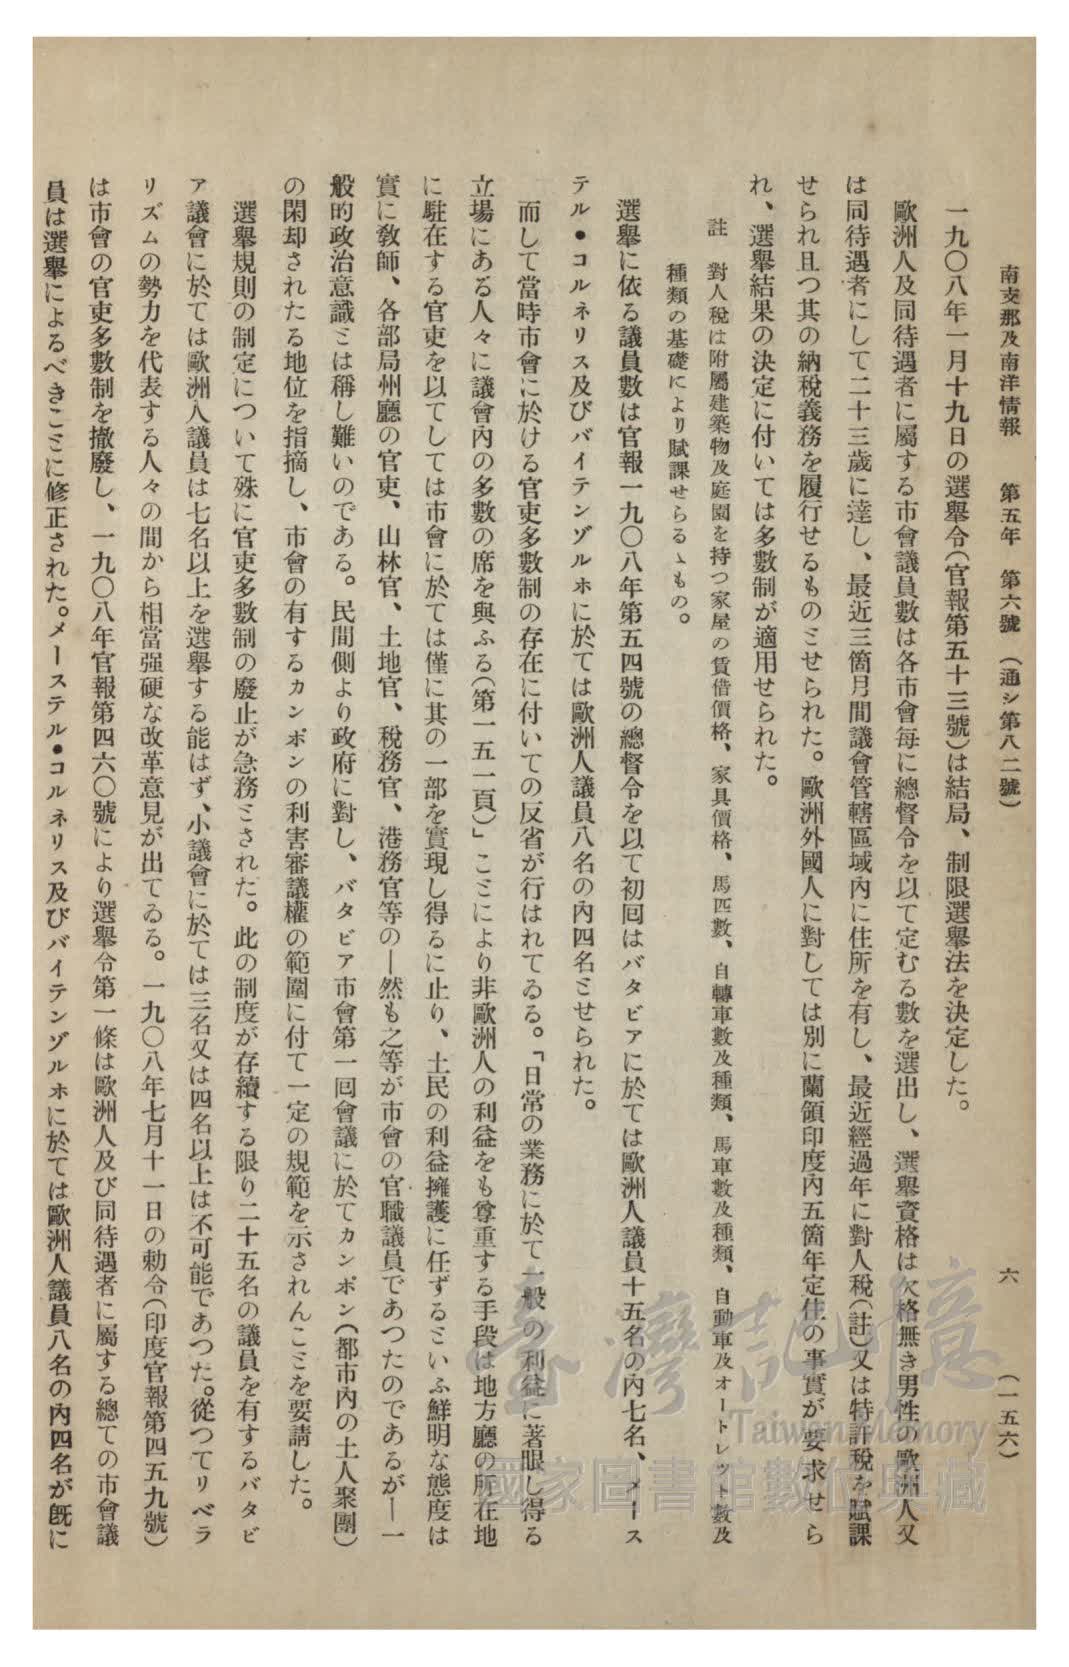 南支那及南洋情報　第五年　第六號　（通シ第八二號）　六　（一五六）
一九〇八年一月十九日の選擧令（官報第五十三號）は結局、制限選擧法を決定した。
歐洲人及同待遇者に屬する市會議員數は各市會每に總督令を以て定むる數を選出し、選擧資格は欠格無き男性の歐洲人又
は同待遇者にして二十三歲に達し、最近三箇月間議會管轄區域內に住所を有し、最近經過年に對人稅（註）又は特許稅を賦課
せられ且つ其の納稅義務を履行せるものとせられた。歐洲外國人に對しては別に蘭領印度內五箇年定住の事實が要求せら
れ、選擧結果の決定に付いては多數制が適用せられた。
註　對人稅は附屬建築物及庭園を持つ家屋の賃借價格、家具價格、馬匹數、自轉車數及種類、馬車數及種類、自動車及オートレット數及
種類の基礎により賦課せらるゝもの。
選擧に依る議員數は官報一九〇八年第五四號の總督令を以て初囘はバタビアに於ては歐洲人議員十五名の內七名、メース
テル・コルネリス及びバイテンゾルホに於ては歐洲人議員八名の內四名とせられた。
而して當時市會に於ける官吏多數制の存在に付いての反省が行はれてゐる。「日常の業務に於て一般の利益に著眼し得る
立場にある人々に議會內の多數の席を與ふる（第一五一頁）」ことにより非歐洲人の利益をも尊重する手段は地方廳の所在地
に駐在する官吏を以てしては市會に於ては僅に其の一部を實現し得るに止り、土民の利益擁護に任ずるといふ鮮明な態度は
實に敎師、各部局州廳の官吏、山林官、土地官、稅務官、港務官等の—然も之等が市會の官職議員であつたのであるが—一
般的政治意識とは稱し難いのである。民間側より政府に對し、バタビア市會第一囘會議に於てカンポン（都市內の土人聚團）
の閑却されたる地位を指摘し、市會の有するカンポンの利害審議權の範圍に付て一定の規範を示されんことを要請した。
選擧規則の制定について殊に官吏多數制の廢止が急務とされた。此の制度が存續する限り二十五名の議員を有するバタビ
ア議會に於ては歐洲人議員は七名以上を選擧する能はず、小議會に於ては三名又は四名以上は不可能であつた。從つてリベラ
リズムの勢力を代表する人々の間から相當强硬な改革意見が出てゐる。一九〇八年七月十一日の勅令（印度官報第四五九號）
は市會の官吏多數制を撤廢し、一九〇八年官報第四六〇號により選擧令第一條は歐洲人及び同待遇者に屬する總ての市會議
員は選擧によるべきことに修正された。メーステル・コルネリス及びバイテンゾルホに於ては歐洲人議員八名の內四名が旣に
臺灣記憶
Taiwan Memory
國家圖書館數位典藏